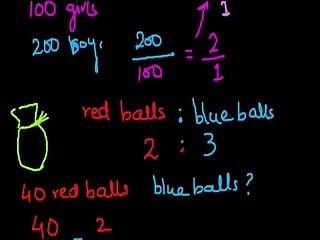 100 girls 1
200 boys 200/100 = 2/1
red balls : blue balls
2 : 3
40 red balls blue balls?
40 2